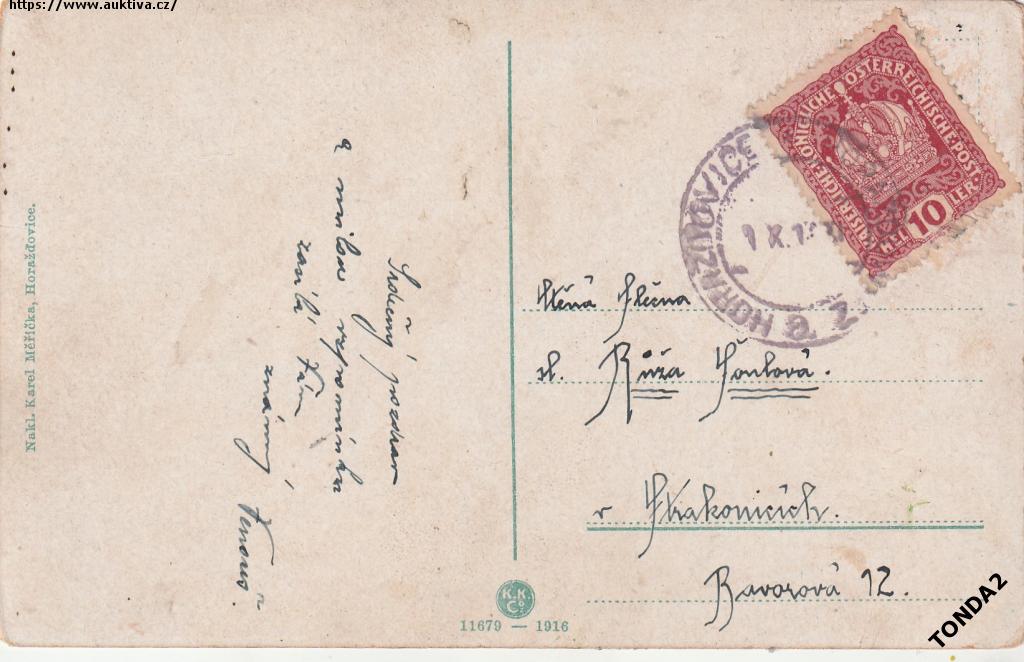 https://www.auktiva.cz/
Nakl. Karel Měřička, Horažďovice.
Srdečný pozdrav
a milou vzpomínku
zasílá Vám
známý
KAISERLICHE KÖNIGLICHE ÖSTERREICHISCHE POST
10
HELLER
HORAŽĎOVICE
Ctěná slečna
sl. Růža
v Strakonicích.
Bavorová 12.
K.K.
Co.
11679 — 1916
TONDA2